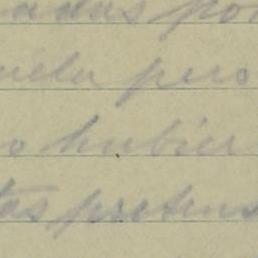 adas po
uela pero
o hubier
tas pretens